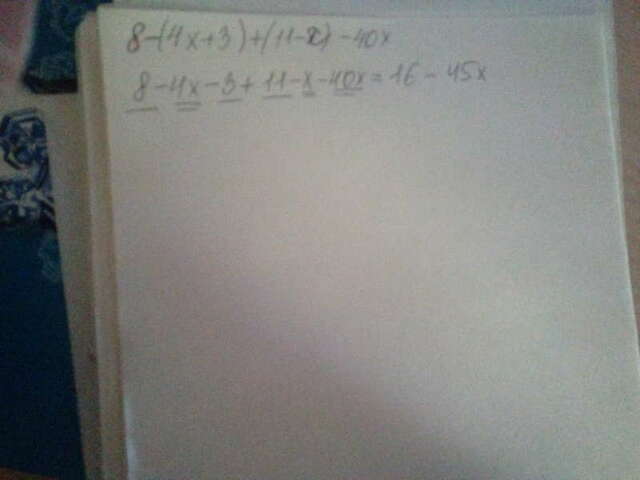 8-(4x+3)+(11-x)-40x
8-4x-3+11-x-40x=16-45x